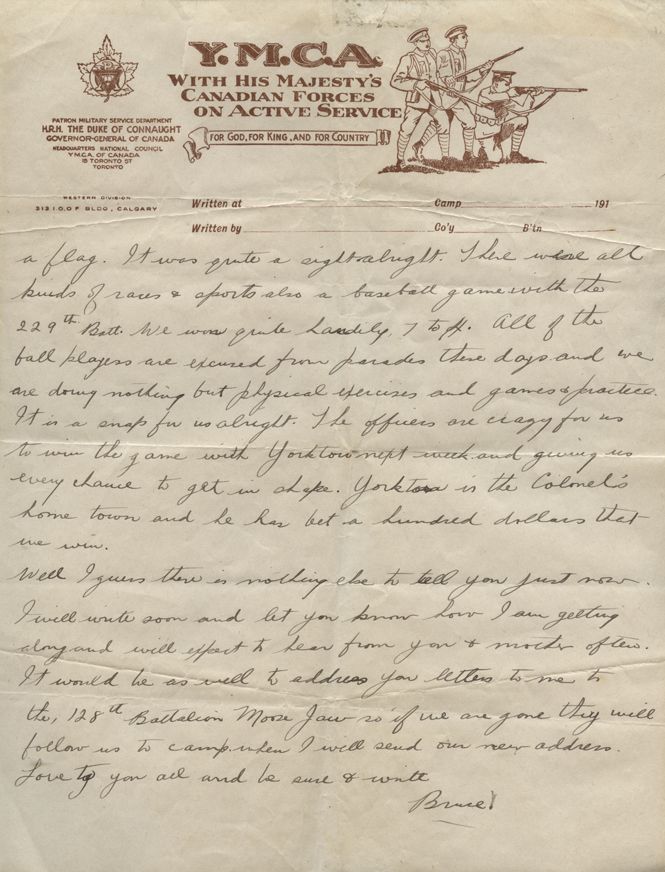 Y.M.C.A.
WITH HIS MAJESTY'S
CANADIAN FORCES
ON ACTIVE SERVICE
FOR GOD, FOR KING, AND FOR COUNTRY
PATRON MILITARY SERVICE DEPARTMENT
H.R.H. THE DUKE OF CONNAUGHT
GOVERNOR-GENERAL OF CANADA
HEADQUARTERS NATIONAL COUNCIL
Y.M.C.A. OF CANADA
15 TORONTO ST
TORONTO
WESTERN DIVISION
313 I.O.O.F BLDG, CALGARY
Written at Camp 191
Written by Co'y B'tn
a flag. It was quite a sight alright. There were all
kinds of races & sports also a baseball game with the
229th Batt. We won quite handily, 7 to 4. All of the
ball players are excused from parades these days and we
are doing nothing but physical exercises and games & practice.
It is a snap for us alright. The officers are crazy for us
to win the game with Yorkton next week and giving us
every chance to get in shape. Yorkton is the Colonel's
home town and he has bet a hundred dollars that
we win.
Well I guess there is nothing else to tell you just now.
I will write soon and let you know how I am getting
along and will expect to hear from you & mother often.
It would be as well to address you letters to me to
the, 128th Battalion Moose Jaw so if we are gone they will
follow us to camp. when I will send our new address.
Love to you all and be sure & write
Bruce